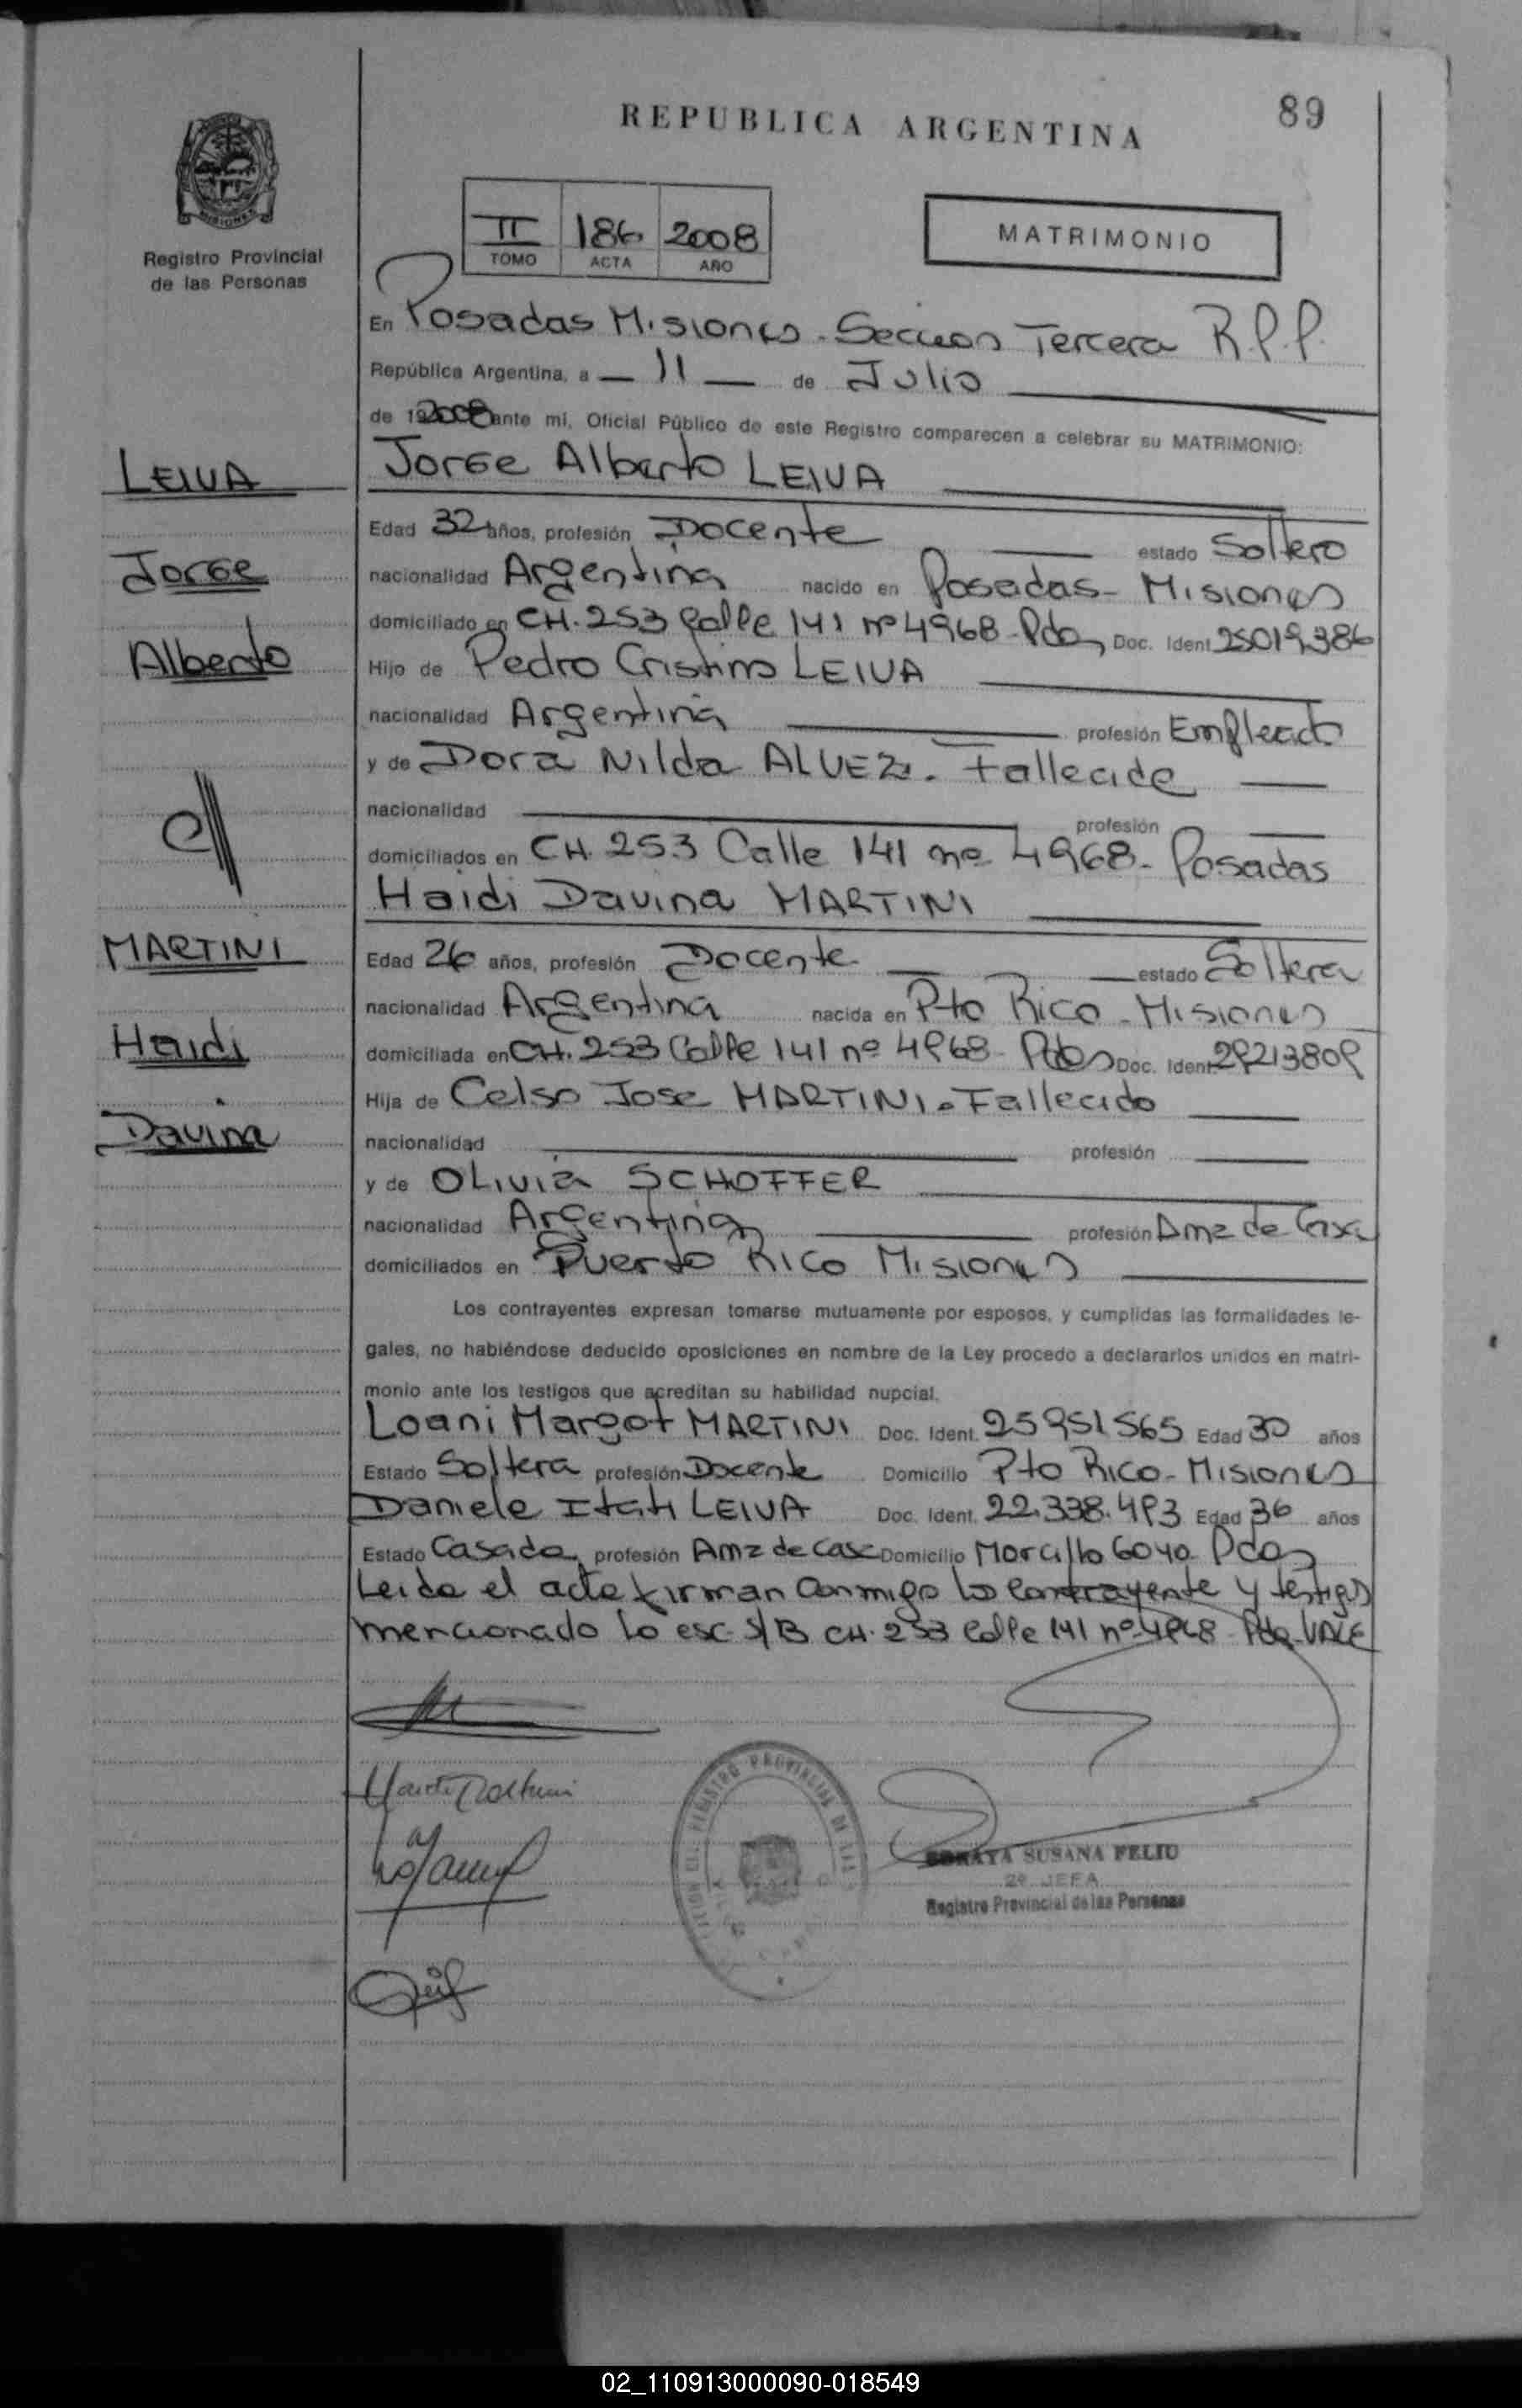 89
REPUBLICA ARGENTINA
MISIONES
Registro Provincial
de las Personas
II 186 2008
TOMO ACTA AÑO
MATRIMONIO
En Posadas Misiones - Seccion Tercera R.P.P.
República Argentina, a — 11 — de Julio
de 2008 ante mi, Oficial Público de este Registro comparecen a celebrar su MATRIMONIO:
LEIVA
Jorge
Alberto
Jorge Alberto LEIVA
Edad 32 años, profesión Docente estado Soltero
nacionalidad Argentina nacido en Posadas - Misiones
domiciliado en CH. 253 Calle 141 nº 4968 - Pdas Doc. Ident. 25019386
Hijo de Pedro Cristino LEIVA
nacionalidad Argentina profesión Empleado
y de Dora Nilda ALVEZ. Fallecida
nacionalidad profesión
domiciliados en CH. 253 Calle 141 nº 4968 - Posadas
MARTINI
Haidi
Davina
Haidi Davina MARTINI
Edad 26 años, profesión Docente estado Soltera
nacionalidad Argentina nacida en Pto Rico - Misiones
domiciliada en CH. 253 Calle 141 nº 4968 - Pdas Doc. Ident. 29213809
Hija de Celso Jose MARTINI. Fallecido
nacionalidad profesión
y de OLivia SCHOFFER
nacionalidad Argentina profesión Ama de Casa
domiciliados en Puerto Rico Misiones
Los contrayentes expresan tomarse mutuamente por esposos, y cumplidas las formalidades le-
gales, no habiéndose deducido oposiciones en nombre de la Ley procedo a declararlos unidos en matri-
monio ante los testigos que acreditan su habilidad nupcial.
Loani Margot MARTINI Doc. Ident. 25951565 Edad 30 años
Estado Soltera profesión Docente Domicilio Pto Rico - Misiones
Daniela Itati LEIVA Doc. Ident. 22.338.493 Edad 36 años
Estado Casada profesión Ama de Casa Domicilio Morcillo 6040 Pdas
Leida el acta firman conmigo los contrayente y testigos
mencionado Lo esc. S/B CH. 253 Calle 141 nº 4968 Pdas - VALE
Haidi Martini
REGISTRO PROVINCIAL DE LAS
SORAYA SUSANA FELIU
2ª JEFA
Registro Provincial de las Personas
02_110913000090-018549